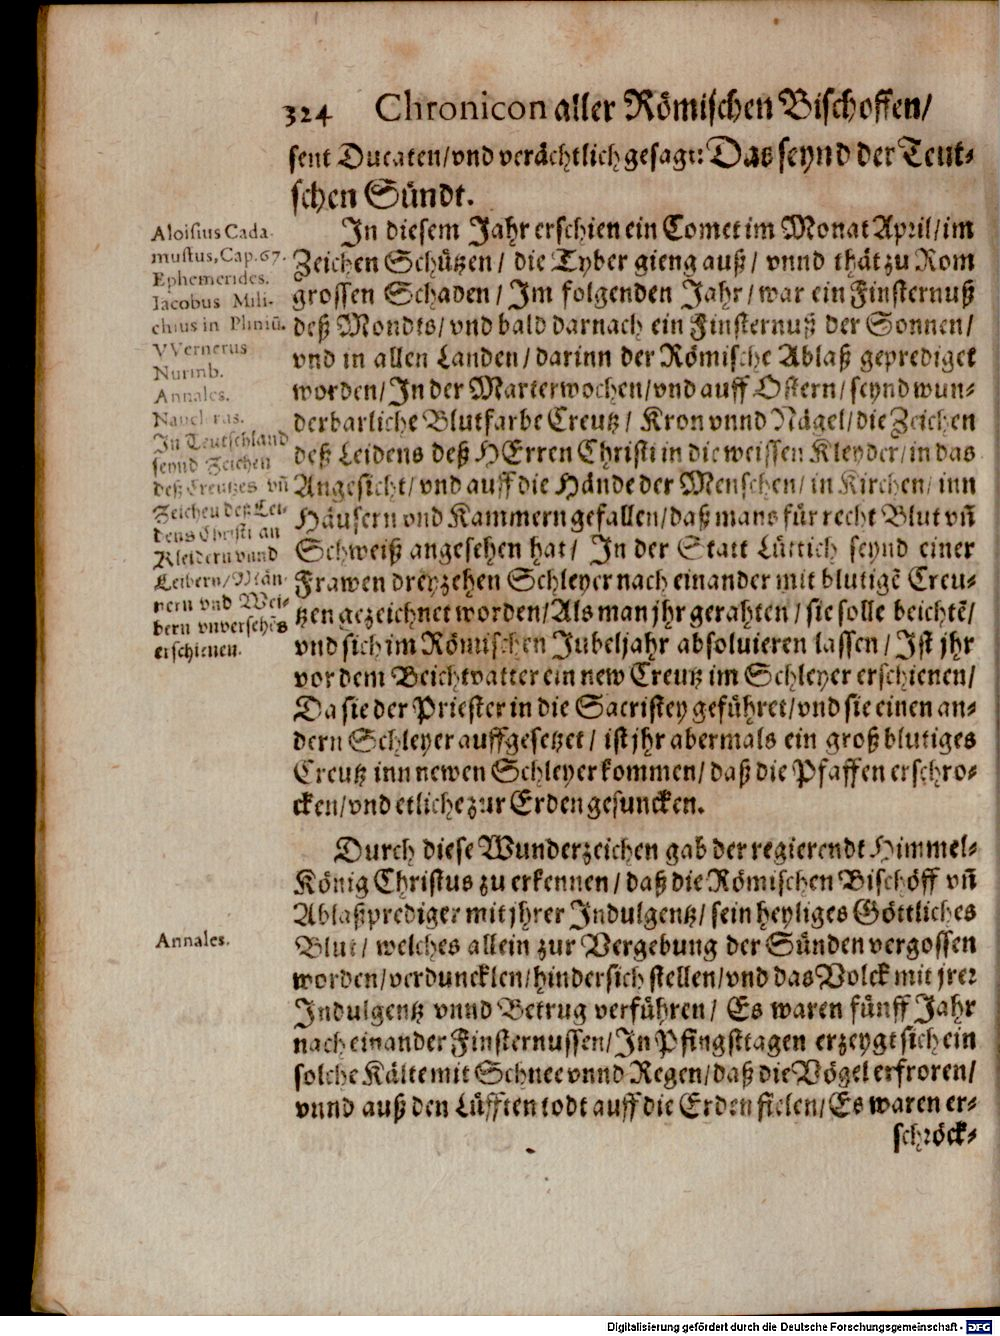 324 Chronicon aller Römischen Bischoffen/
sent Ducaten/vnd verächtlich gesagt: Das seynd der Teut-
schen Sündt.
In diesem Jahr erschien ein Comet im Monat April/im
Zeichen Schützen/ die Tyber gieng auß/ vnnd thät zu Rom
grossen Schaden/ Im folgenden Jahr/ war ein Finsternuß
deß Mondts/vnd bald darnach ein Finsternuß der Sonnen/
vnd in allen Landen/ darinn der Römische Ablaß geprediget
worden/ In der Marterwochen/vnd auff Ostern/ seynd wun-
derbarliche Blutfarbe Creutz/ Kron vnnd Nägel/die Zeichen
deß Leidens deß HErren Christi in die weissen Kleyder/in das
Angesicht/vnd auff die Hände der Menschen/ in Kirchen/ inn
Häusern vnd Kammern gefallen/daß mans für recht Blut vñ
Schweiß angesehen hat/ In der Statt Lüttich seynd einer
Frawen dreyzehen Schleyer nach einander mit blutigē Creu-
tzen gezeichnet worden/Als man jhr gerahten/ sie solle beichtē/
vnd sich im Römischen Jubeljahr absoluieren lassen/ Ist jhr
vor dem Beichtvatter ein new Creutz im Schleyer erschienen/
Da sie der Priester in die Sacristey geführet/vnd sie einen an-
dern Schleyer auffgesetzet/ ist jhr abermals ein groß blutiges
Creutz inn newen Schleyer kommen/ daß die Pfaffen erschro-
cken/vnd etliche zur Erden gesuncken.
Durch diese Wunderzeichen gab der regierendt Himmel-
König Christus zu erkennen/ daß die Römischen Bischöff vñ
Ablaßprediger mit jhrer Indulgentz/ sein heyliges Göttliches
Blut/ welches allein zur Vergebung der Sünden vergossen
worden/verduncklen/hindersich stellen/vnd das Volck mit jrer
Indulgentz vnnd Betrug verführen/ Es waren fünff Jahr
nach einander Finsternussen/In Pfingsttagen erzeygt sich ein
solche Kälte mit Schnee vnnd Regen/daß die Vögel erfroren/
vnnd auß den Lüfften todt auff die Erden fielen/Es waren er-
schröck-
Aloisius Cada
mustus, Cap. 67.
Ephemerides.
Iacobus Mili-
chius in Pliniū.
VVernerus
Nurmb.
Annales.
In Teutschland
seynd Zeichen
deß Creutzes vñ
Zeichen deß Lei-
dens Christi an
Kleidern vnnd
Leibern/ Män-
nern vnd Wei-
bern vnversehēs
erschienen.
Annales.
Digitalisierung gefördert durch die Deutsche Forschungsgemeinschaft - DFG